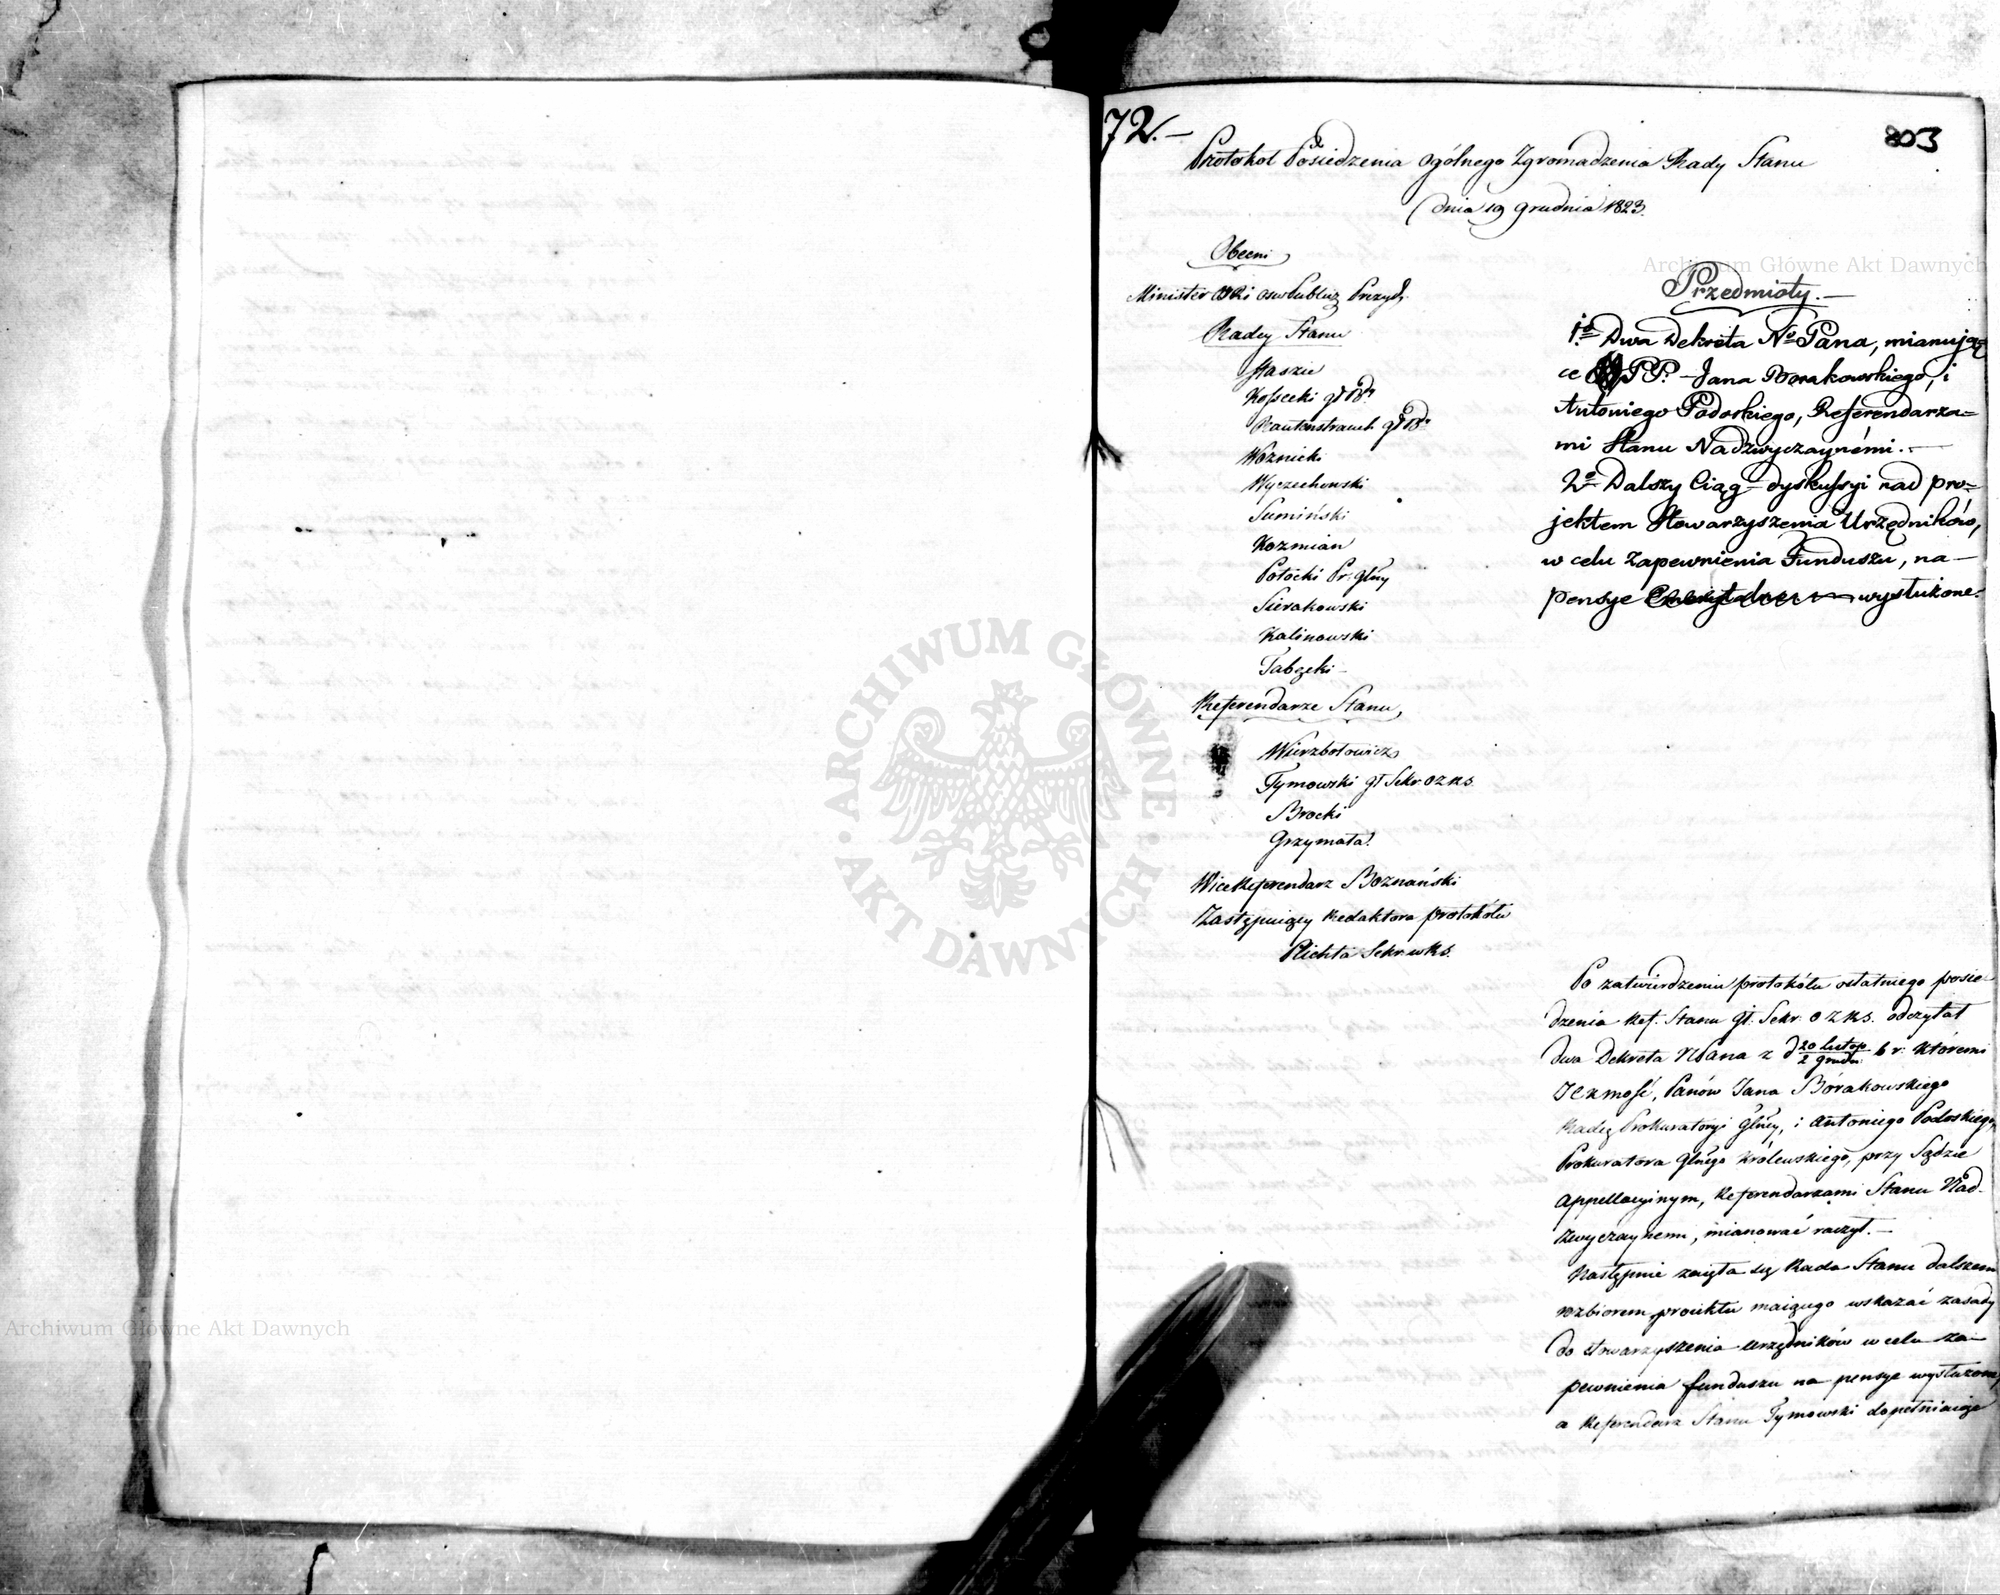 72.
803
Protokol Posiedzenia Ogólnego Zgromadzenia Rady Stanu
dnia 19 Grudnia 1823.
Obecni
Minister Publicz Prezyd.
Radcy Stanu
Staszic
Kossecki
Rautenstrauch
Woznicki
Wyczechowski
Sumiński
Kozmian
Potocki Pr. Głny
Sierakowski
Kalinowski
Tabęcki
Referendarze Stanu
Wierzbołowicz
Tymowski gł Sekr O Z R S.
Brocki
Grzymała
Wice Referendarz Boznański
Zastępuiący Redaktora protokółu
Plichta Sekr. w R S.
Przedmioty.—
1º Dwa Dekreta No Pana, mianują-
ce PP. Jana Borakowskiego, i
Antoniego Podoskiego, Referendarza-
mi Stanu Nadzwyczaynémi.—
2º Dalszy Ciąg dyskussyi nad pro-
jektem Stowarzyszenia Urzędników,
w celu Zapewnienia Funduszu, na-
pensye wysłużone.
Po zatwierdzeniu protokółu ostatniego posie-
dzenia Ref. Stanu gł. Sekr. O Z R S. odczytał
dwa Dekreta NPana z d 20 Listop / 2 Grudn. b r. któremi
JCKMość, Panów Jana Bórakowskiego
Radcę Prokuratoryi Głney, i Antoniego Podoskiego,
Prokuratora Głnego Królewskiego, przy Sądzie
Appellacyinym, Referendarzami Stanu Nad-
zwyczaynemi, mianować raczył.—
Następnie zaięła się Rada Stanu dalszem
rozbiorem proiektu maiącego wskazać zasady
do stowarzyszenia urzędników w celu za-
pewnienia funduszu na pensye wysłużone,
a Referendarz Stanu Tymowski dopełniaiąc
Archiwum Główne Akt Dawnych
ARCHIWUM GŁÓWNE · AKT DAWNYCH ·
Archiwum Główne Akt Dawnych